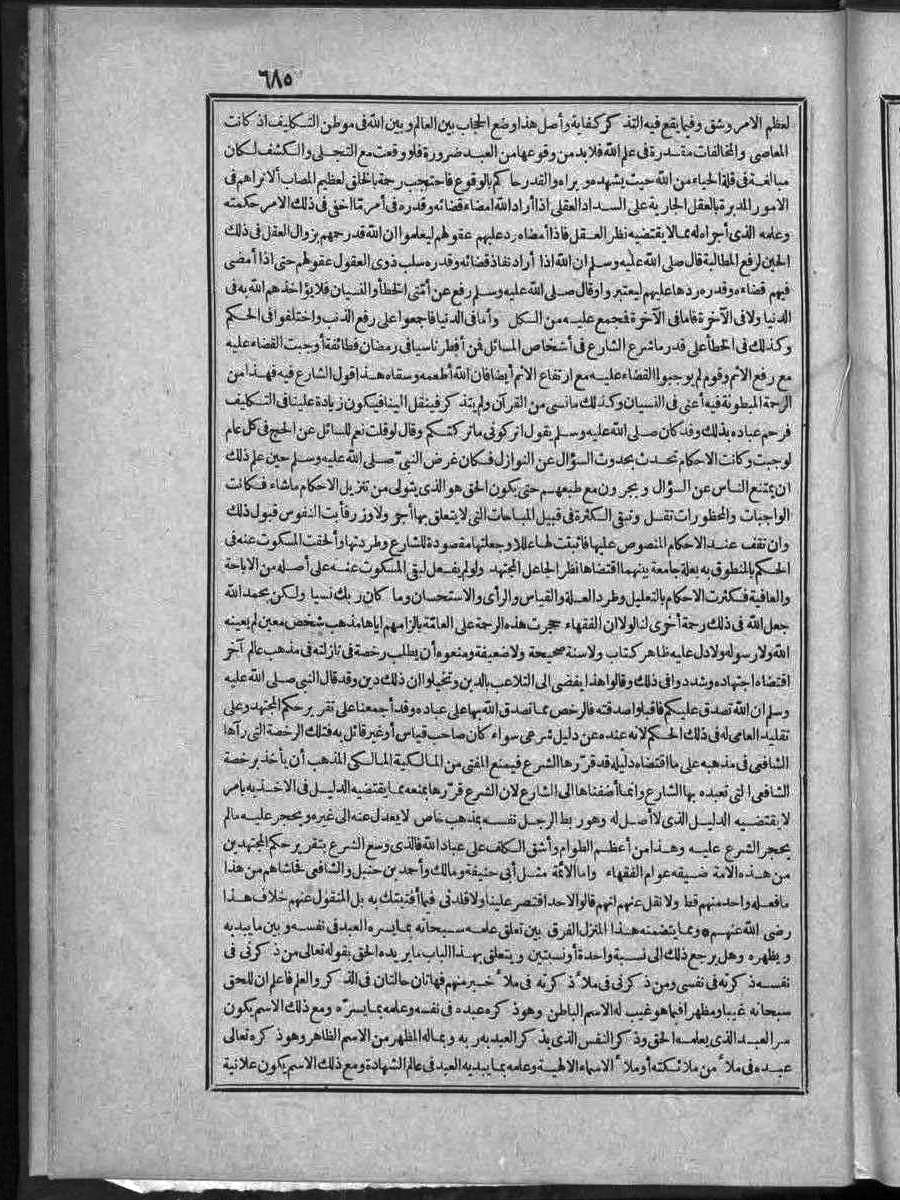 ٦٨٥
لعظم الامر وشق وفيما يقع فيه التذكر كفاية وأصل هذا وضع الحجاب بين العالم وبين الله فى موطن التكليف اذ كانت
المعاصى والمخالفات مقدرة فى علم الله فلابد من وقوعها من العبد ضرورة فلو وقعت مع التجلى والكشف لكان
مبالغة فى قلة الحياء من الله حيث يشهده ويراه والقدر حاكم بالوقوع فاحتجب رحمة بالخلق لعظيم المصاب ألا تراهم فى
الامور المدبرة بالعقل الجارية على السداد العقلى اذا أراد الله امضاء قضائه وقدره فى أمر تما اخفى فى ذلك الامر حكمته
وعلمه الذى أجراه له مما لا يقتضيه نظر العقل فاذا أمضاه رد عليهم عقولهم ليعلموا ان الله قد رحمهم بزوال العقل فى ذلك
الحين لرفع المطالبة قال صلى الله عليه وسلم ان الله اذا أراد نفاذ قضائه وقدره سلب ذوى العقول عقولهم حتى اذا أمضى
فيهم قضاءه وقدره ردها عليهم ليعتبروا وقال صلى الله عليه وسلم رفع عن أمتى الخطأ والنسيان فلا يؤاخذهم الله به فى
الدنيا ولا فى الآخرة فاما فى الآخرة فجمع عليه من الكل وأما فى الدنيا فاجمعوا على رفع الذنب واختلفوا فى الحكم
وكذلك فى الخطأ على قدر ما شرع الشارع فى أشخاص المسائل فمن أفطر ناسيا فى رمضان فطائفة أوجبت القضاء عليه
مع رفع الاثم وقوم لم يوجبوا القضاء عليه مع ارتفاع الاثم أيضا فان الله أطعمه وسقاه هذا قول الشارع فيه فهذا من
الرحمة المبطونة فيه أعنى فى النسيان وكذلك ما نسى من القرآن ولم يتذكر فينقل الينا فيكون زيادة علينا فى التكليف
فرحم عباده بذلك وقد كان صلى الله عليه وسلم يقول اتركونى ما تركتكم وقال لو قلت نعم للسائل عن الحج فى كل عام
لوجبت وكانت الاحكام تحدث بحدوث السؤال عن النوازل فكان غرض النبىّ صلى الله عليه وسلم حين علم ذلك
ان يمتنع الناس عن السؤال ويجرون مع طبعهم حتى يكون الحق هو الذى يتولى من تنزيل الاحكام ما شاء فكانت
الواجبات والمحظورات تقل وتبقى الكثرة فى قبيل المباحات التى لا يتعلق بها أجر ولا وزر فأبت النفوس قبول ذلك
وان تقف عند الاحكام المنصوص عليها فاثبتت لها عللا وجعلتها مقصودة للشارع وطردتها وألحقت المسكوت عنه فى
الحكم بالمنطوق به بعلة جامعة بينهما اقتضاها نظر الجاعل المجتهد ولو لم يفعل لبقى المسكوت عنه على أصله من الاباحة
والعافية فكثرت الاحكام بالتعليل وطرد العلة والقياس والرأى والاستحسان وما كان ربك نسيا ولكن بحمد الله
جعل الله فى ذلك رحمة أخرى لنا لولا ان الفقهاء حجرت هذه الرحمة على العامّة بالزامهم اياها مذهب شخص معين لم يعينه
الله ولا رسوله ولا دل عليه ظاهر كتاب ولا سنة صحيحة ولا ضعيفة ومنعوه أن يطلب رخصة فى نازلته فى مذهب عالم آخر
اقتضاه اجتهاده وشددوا فى ذلك وقالوا هذا يفضى الى التلاعب بالدين وتخيلوا ان ذلك دين وقد قال النبى صلى الله عليه
وسلم ان الله تصدق عليكم فاقبلوا صدقته فالرخص مما تصدق الله بها على عباده وقد أجمعنا على تقرير حكم المجتهد وعلى
تقليد العامى له فى ذلك الحكم لانه عنده عن دليل شرعى سواء كان صاحب قياس أو غير قائل به فتلك الرخصة التى رآها
الشافعى فى مذهبه على ما اقتضاه دليله قد قرّرها الشرع فيمنع المفتى من المالكية المالكى المذهب أن يأخذ برخصة
الشافعى التى تعبده بها الشارع وانما أضفناها الى الشارع لان الشرع قرّرها بمنعه مما يقتضيه الدليل فى الاخذ به بامر
لا يقتضيه الدليل الذى لا أصل له وهو ربط الرجل نفسه بمذهب خاص لا يعدل عنه الى غيره ويحجر عليه مالم
يحجر الشرع عليه وهذا من أعظم الطوام وأشق الكلف على عباد الله فالذى وسع الشرع بتقرير حكم المجتهدين
من هذه الامة ضيقه عوام الفقهاء واما الائمّة مثل أبى حنيفة ومالك وأحمد بن حنبل والشافعى فحاشاهم من هذا
ما فعله واحد منهم قط ولا نقل عنهم انهم قالوا لاحد اقتصر علينا ولا قلدنى فيما أفتيتك به بل المنقول عنهم خلاف هذا
رضى الله عنهم * ومما يتضمنه هذا المنزل الفرق بين تعلق علمه سبحانه بما يسره العبد فى نفسه وبين ما يبديه
ويظهره وهل يرجع ذلك الى نسبة واحدة أو نسبتين ويتعلق بهذا الباب ما يريده الحق بقوله تعالى من ذكرنى فى
نفسه ذكرته فى نفسى ومن ذكرنى فى ملأ ذكرته فى ملأ خير منهم فهاتان حالتان فى الذكر والعلم فاعلم ان للحق
سبحانه غيبا ومظهرا فيما هو غيب له الاسم الباطن وهو ذكره عبده فى نفسه وعلمه بما يسرّه ومع ذلك الاسم يكون
سر العبد الذى يعلمه الحق وذكر النفس الذى يذكر العبد به ربه وبماله المظهر من الاسم الظاهر وهو ذكره تعالى
عبده فى ملأ من ملائكته أو ملأ الاسماء الالهية وعلمه بما يبديه العبد فى عالم الشهادة ومع ذلك الاسم يكون علانية